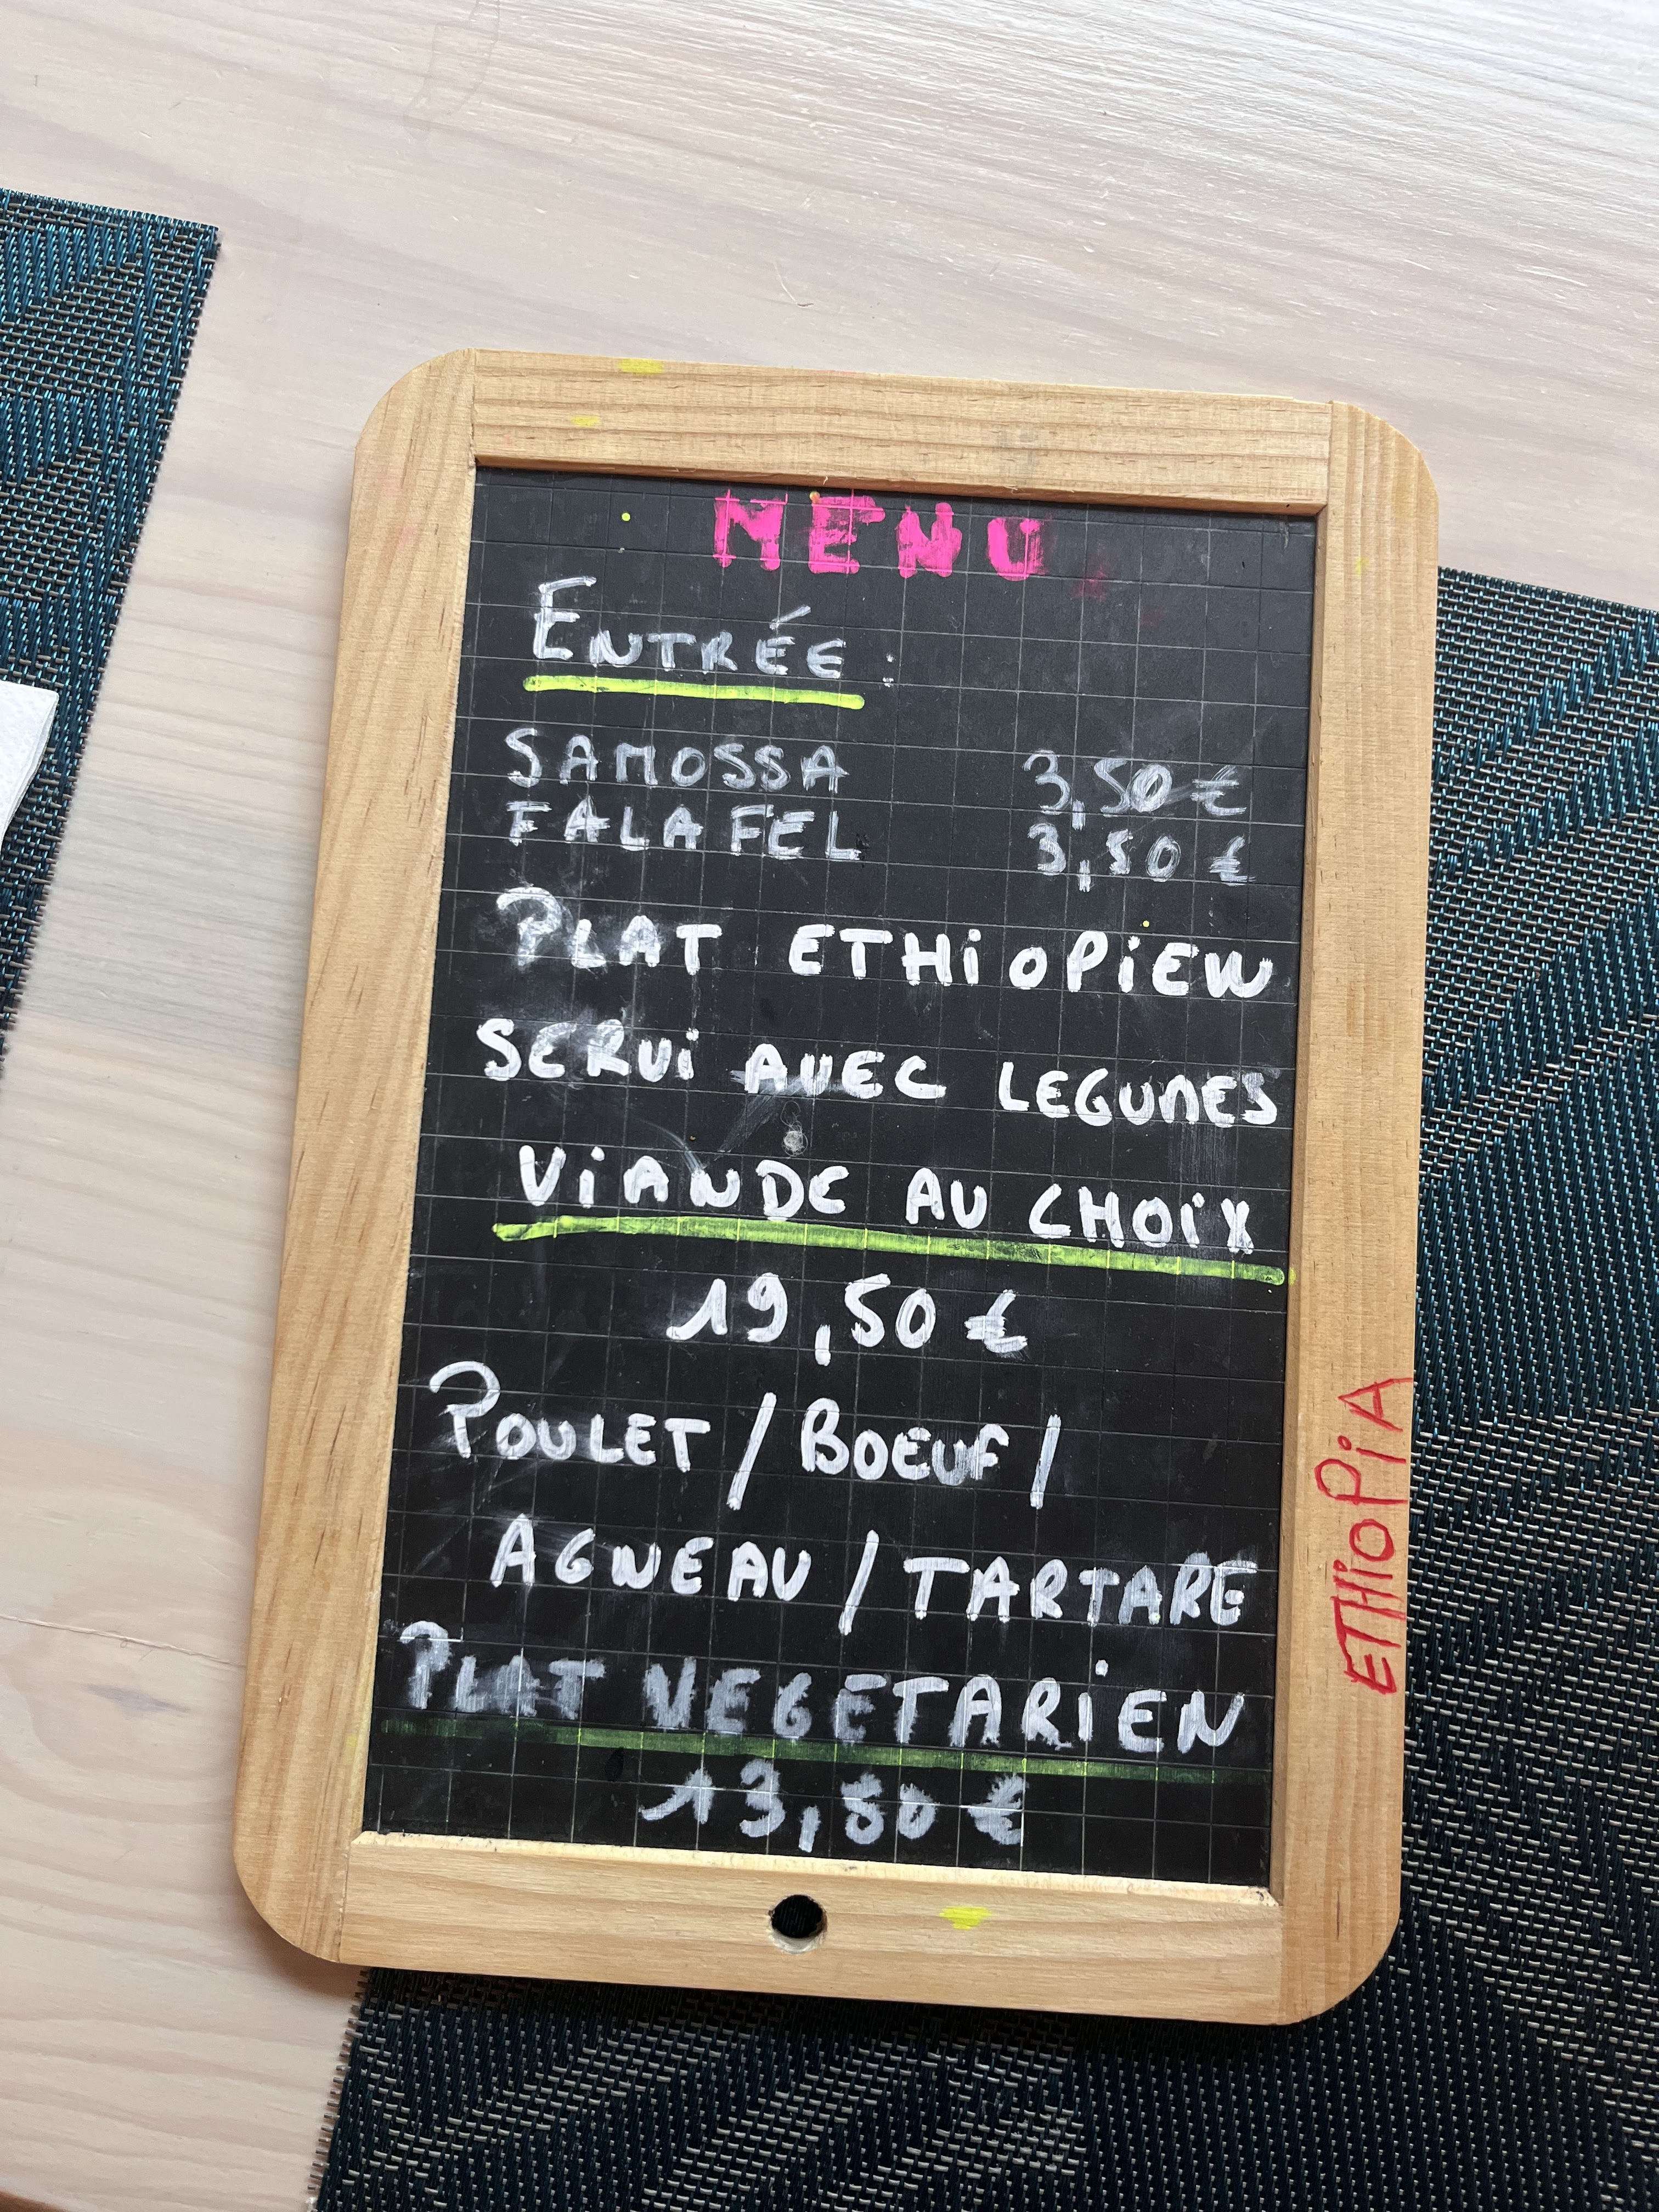 MENU
ENTRÉE :
SAMOSSA 3,50 €
FALAFEL 3,50 €
PLAT ETHiOPiEN
SERVi AVEC LEGUMES
ViANDE AU CHOiX
19,50 €
POULET / BOEUF /
AGNEAU / TARTARE
PLAT VEGETARiEN
13,50 €
ETHiOPiA